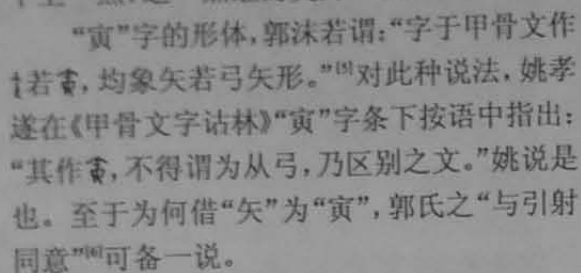 “寅”字的形体,郭沫若谓:“字于甲骨文作
若,均象矢若弓矢形。”[5]对此种说法,姚孝
遂在《甲骨文字诂林》“寅”字条下按语中指出:
“其作,不得谓为从弓,乃区别之文。”姚说是
也。至于为何借“矢”为“寅”,郭氏之“与引射
同意”[6]可备一说。